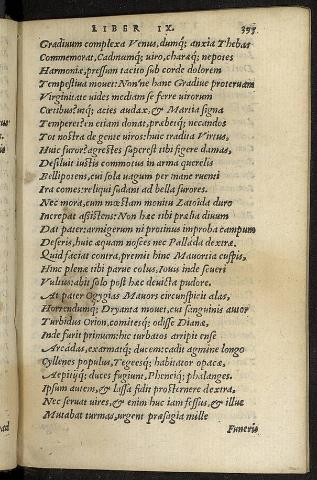 LIBER IX. 393
Gradiuum complexa Venus, dumq; anxia Thebas
Commemorat, Cadmumq; uiro, charæq; nepotes
Harmoniæ, pressum tacito sub corde dolorem
Tempestiua mouet: Non'ne hanc Gradiue proteruam
Virginitate uides mediam se ferre uirorum
Cœtibus? utq; acies audax, & Martia signa
Temperet? en etiam donat, præbetq; necandos
Tot nostra de gente uiros: huic tradita Virtus,
Huic furor? agrestes superest tibi figere damas,
Desiluit iustis commotus in arma querelis
Bellipotens, cui sola uagum per inane ruenti
Ira comes: reliqui sudant ad bella furores.
Nec mora, cum mœstam monitu Latoida duro
Increpat assistens: Non hæc tibi prælia diuum
Dat pater: armigerum ni protinus improba campum
Deseris, huic æquam nosces nec Pallada dextræ.
Quid faciat contra, premit hinc Mauortia cuspis,
Hinc plenæ tibi parue colus, Iouis inde seueri
Vultus: abit solo post hæc deuicta pudore.
At pater Ogygias Mauors circunspicit alas,
Horrendumq; Dryanta mouet, cui sanguinis autor
Turbidus Orion, comitesq; odisse Dianæ,
Inde furit primum: hic turbatos arripit ense
Arcadas, exarmatq; ducem: cadit agmine longo
Cyllenes populus, Tegeesq; habitator opacæ,
Aepitijq; duces fugiunt, Pheneiq; phalanges.
Ipsum autem, & lassa fidit prosternere dextra,
Nec seruat uires, & enim huc iam fessus, & illuc
Mutabat turmas, urgent præsagia mille
Funeris